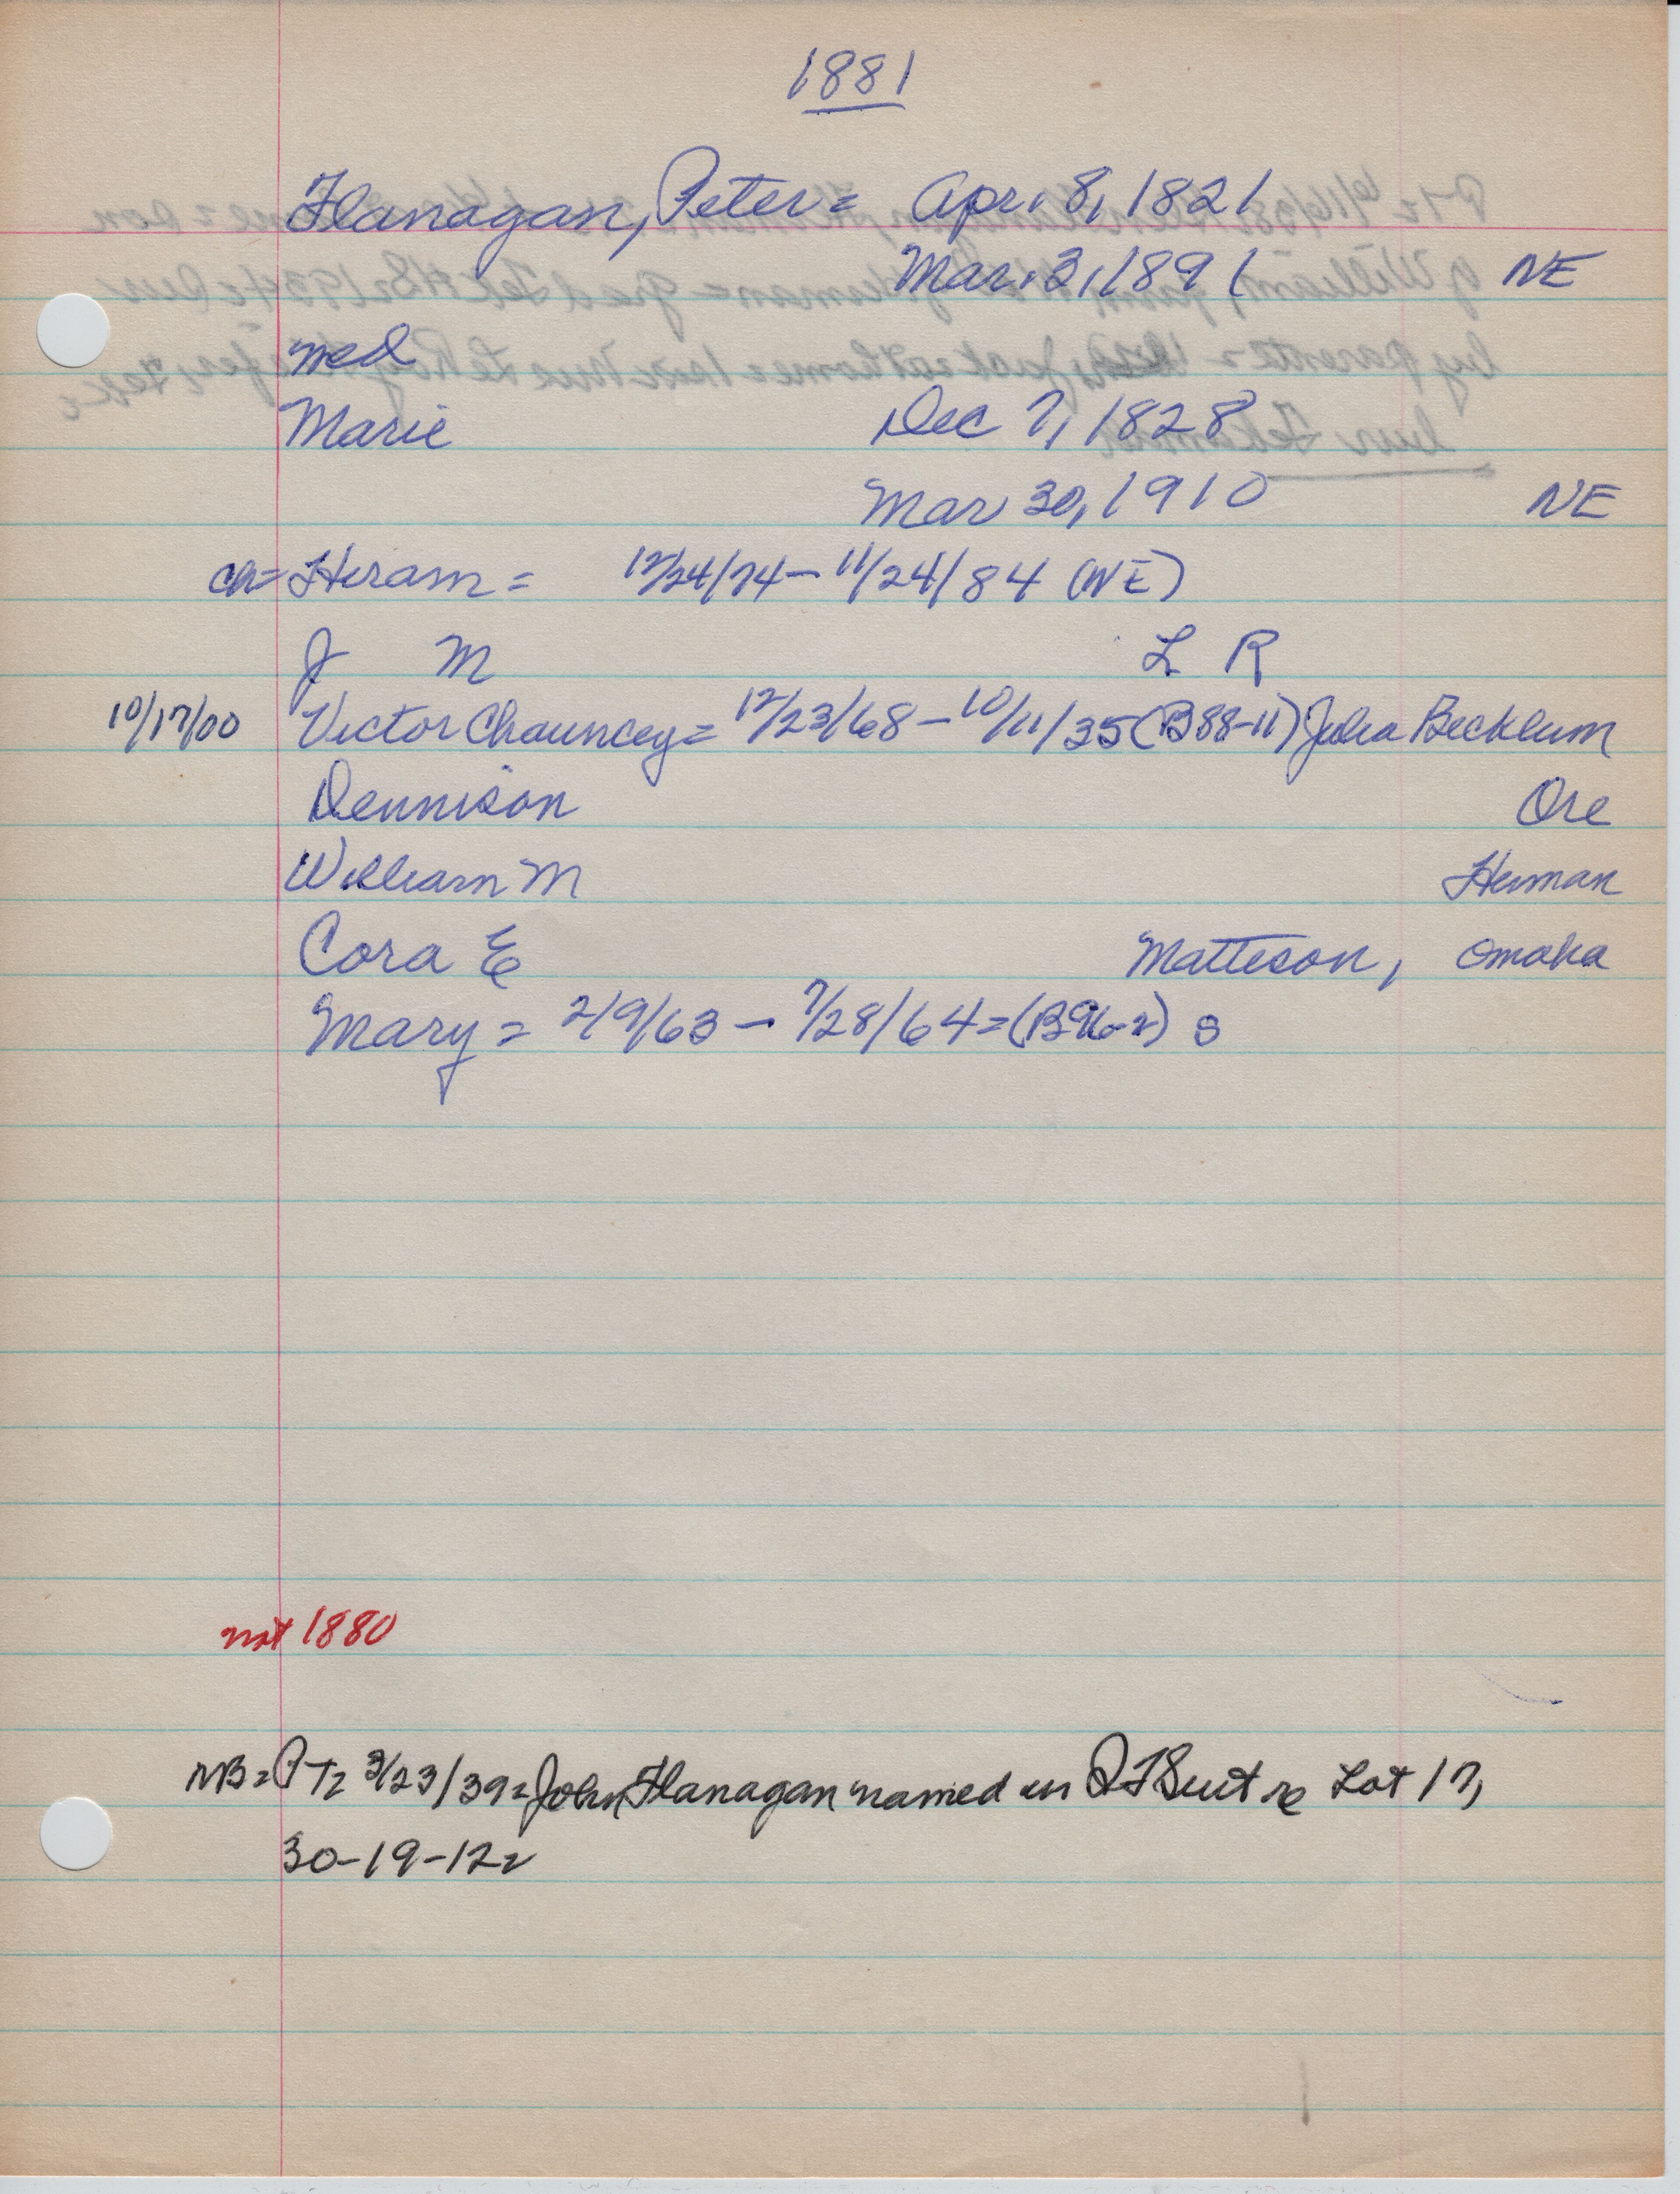 1881
Flanagan, Peter = Apr. 8, 1821
Mar. 3, 1891 NE
med
Marie Dec 7, 1828
Mar 30, 1910 NE
ch= Hiram = 12/24/74 - 11/24/84 (NE)
J M L R
10/17/00 Victor Chauncey = 12/23/68 - 10/11/35 (B88-11) Julia Becklum
Dennison Ore
William M Herman
Cora E Matteson, Omaha
Mary = 2/9/63 - 7/28/64 = (B96-2) s
not 1880
MB = PT = 3/23/39 = John Flanagan named in QT Suit re Lot 17,
30-19-12